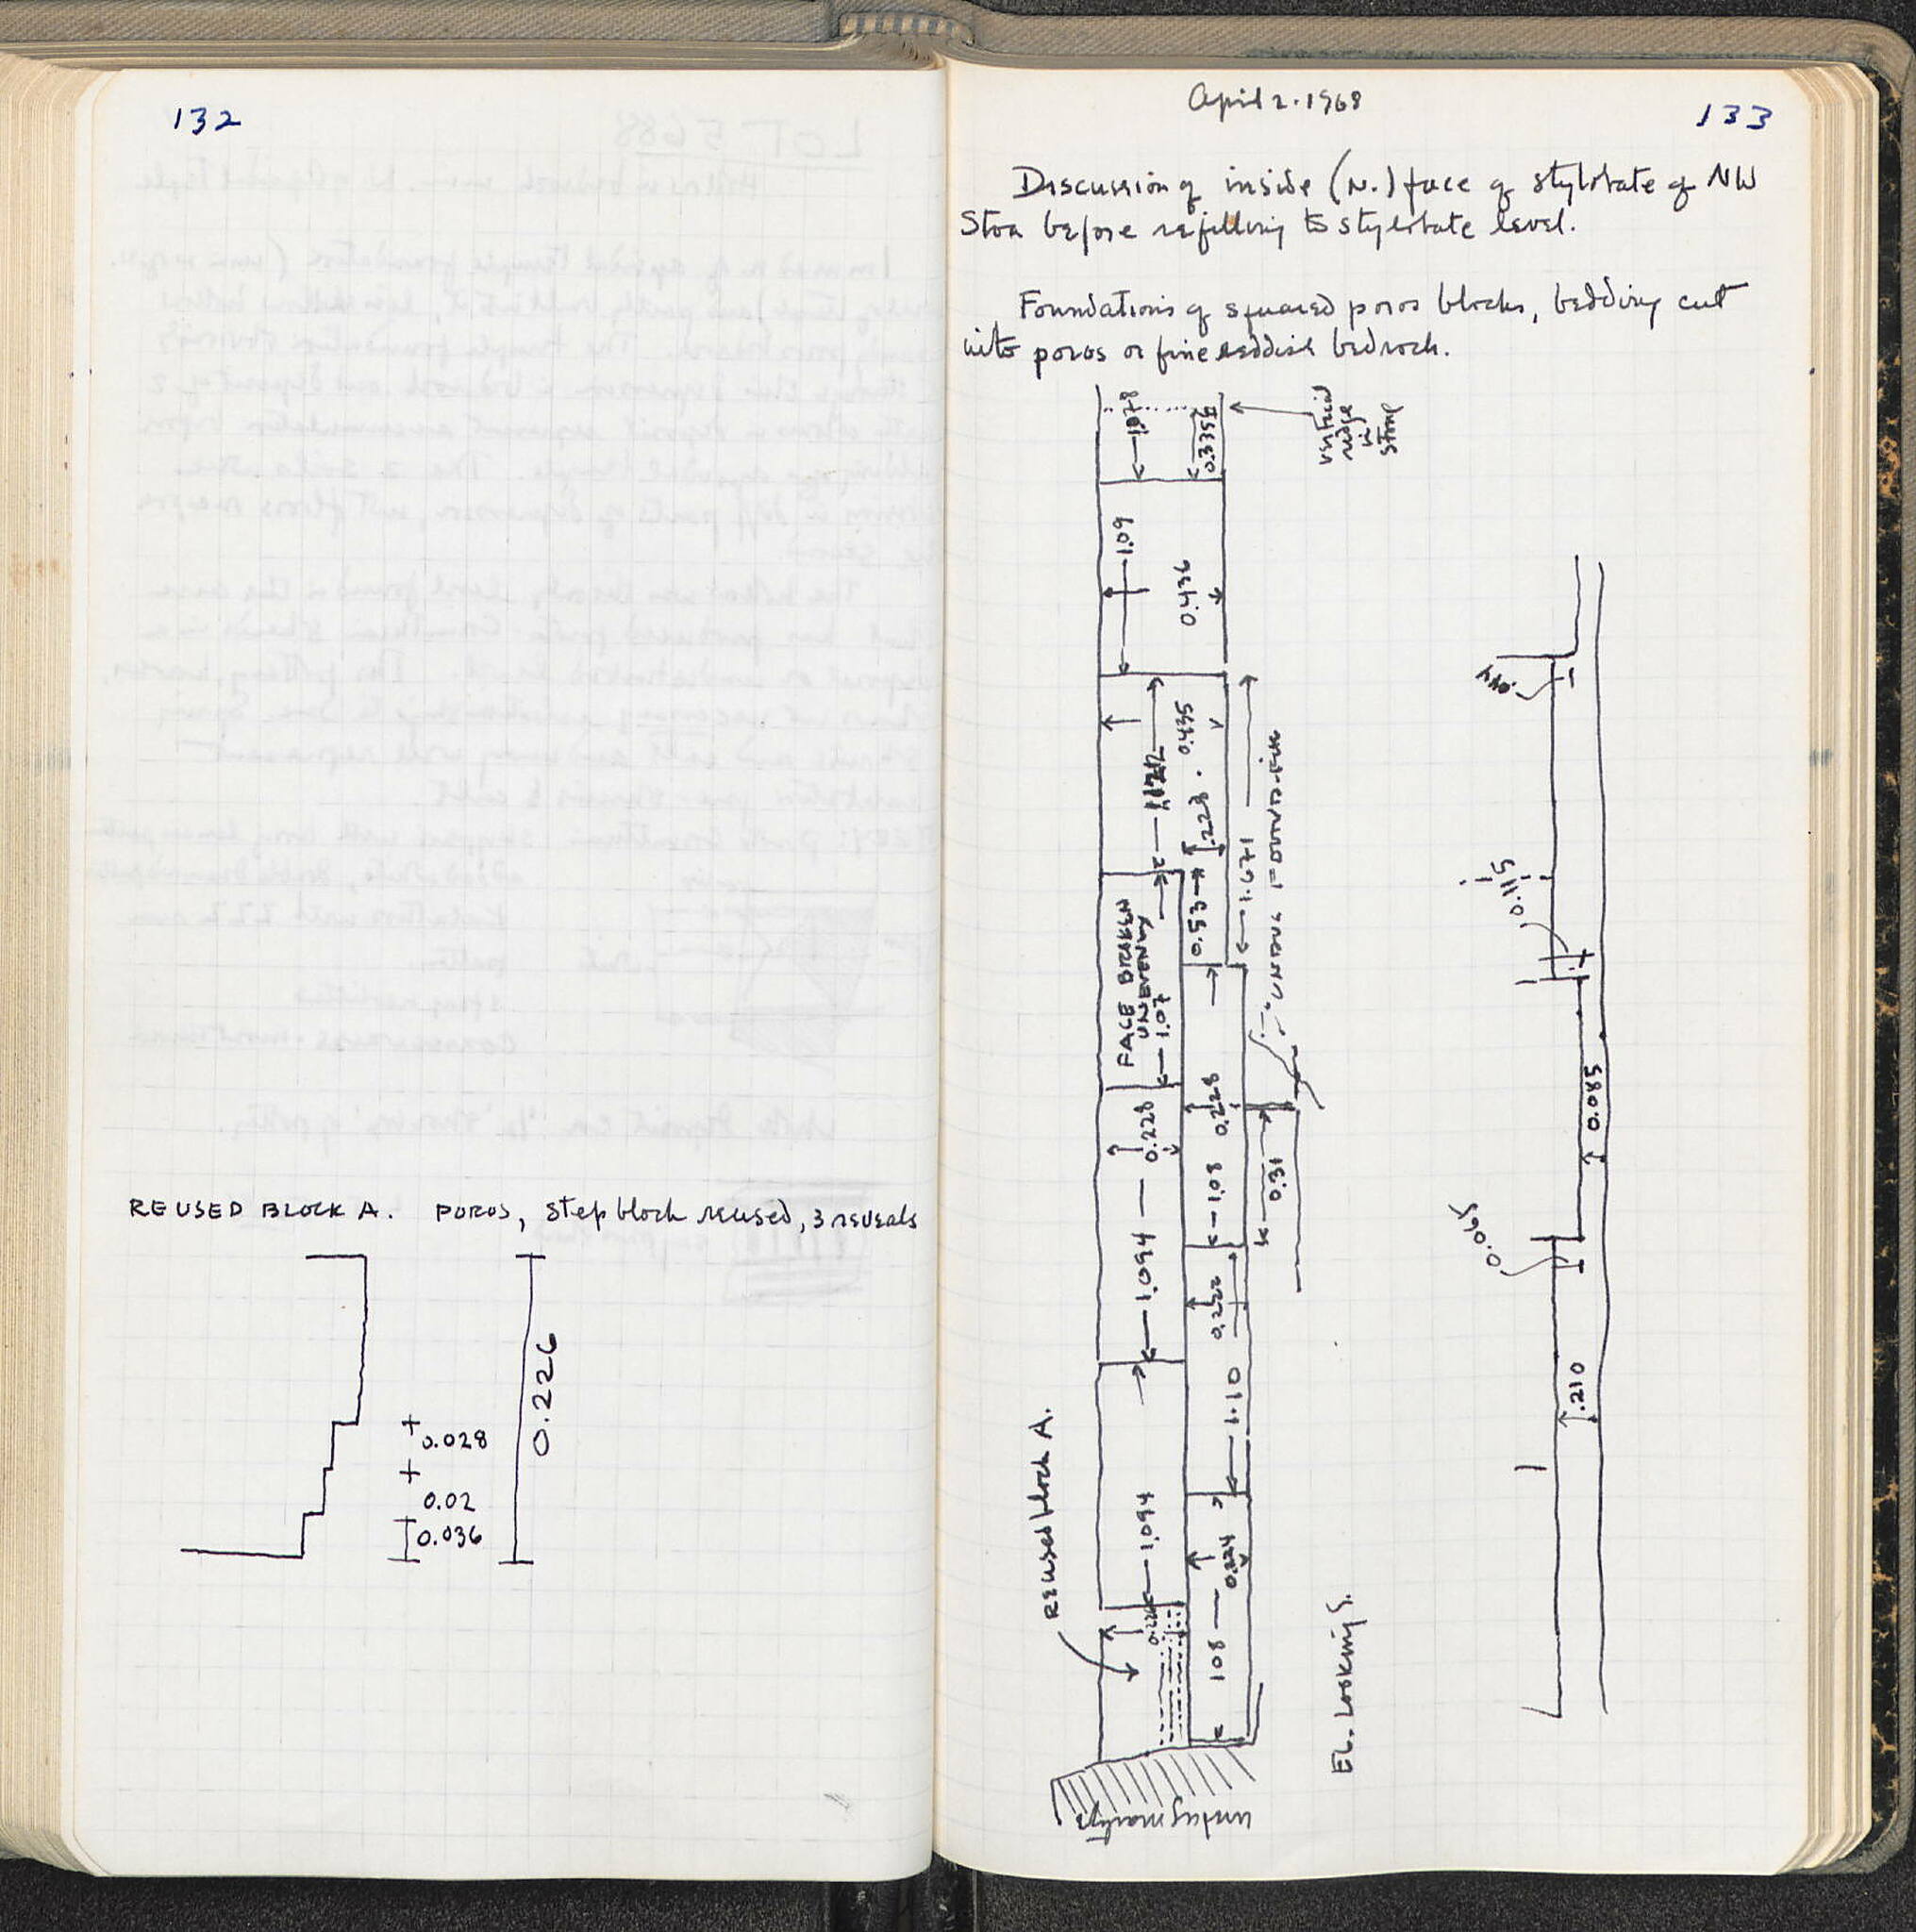 132
REUSED BLOCK A. POROS, step block reused, 3 reveals
0.028
0.02
0.036
0.226
April 2. 1968
133
Discussion of inside (N.) face of stylobate of NW
Stoa before refilling to stylobate level.
Foundations of squared poros blocks, bedding cut
into poros or fine reddish bedrock.
vertical
ridge
in
stone
0.335
1.09
0.436
0.435
.228
1.671
UNDUG FOUND-ING
FACE BROKEN
UNEVENLY
1.07
0.53
0.228
0.228
1.08
0.31
1.094
0.222
1.10
reused block A.
1.094
0.224
0.226
108
undug martyr
EL. Looking S.
.044
0.115
0.085
0.065
.210